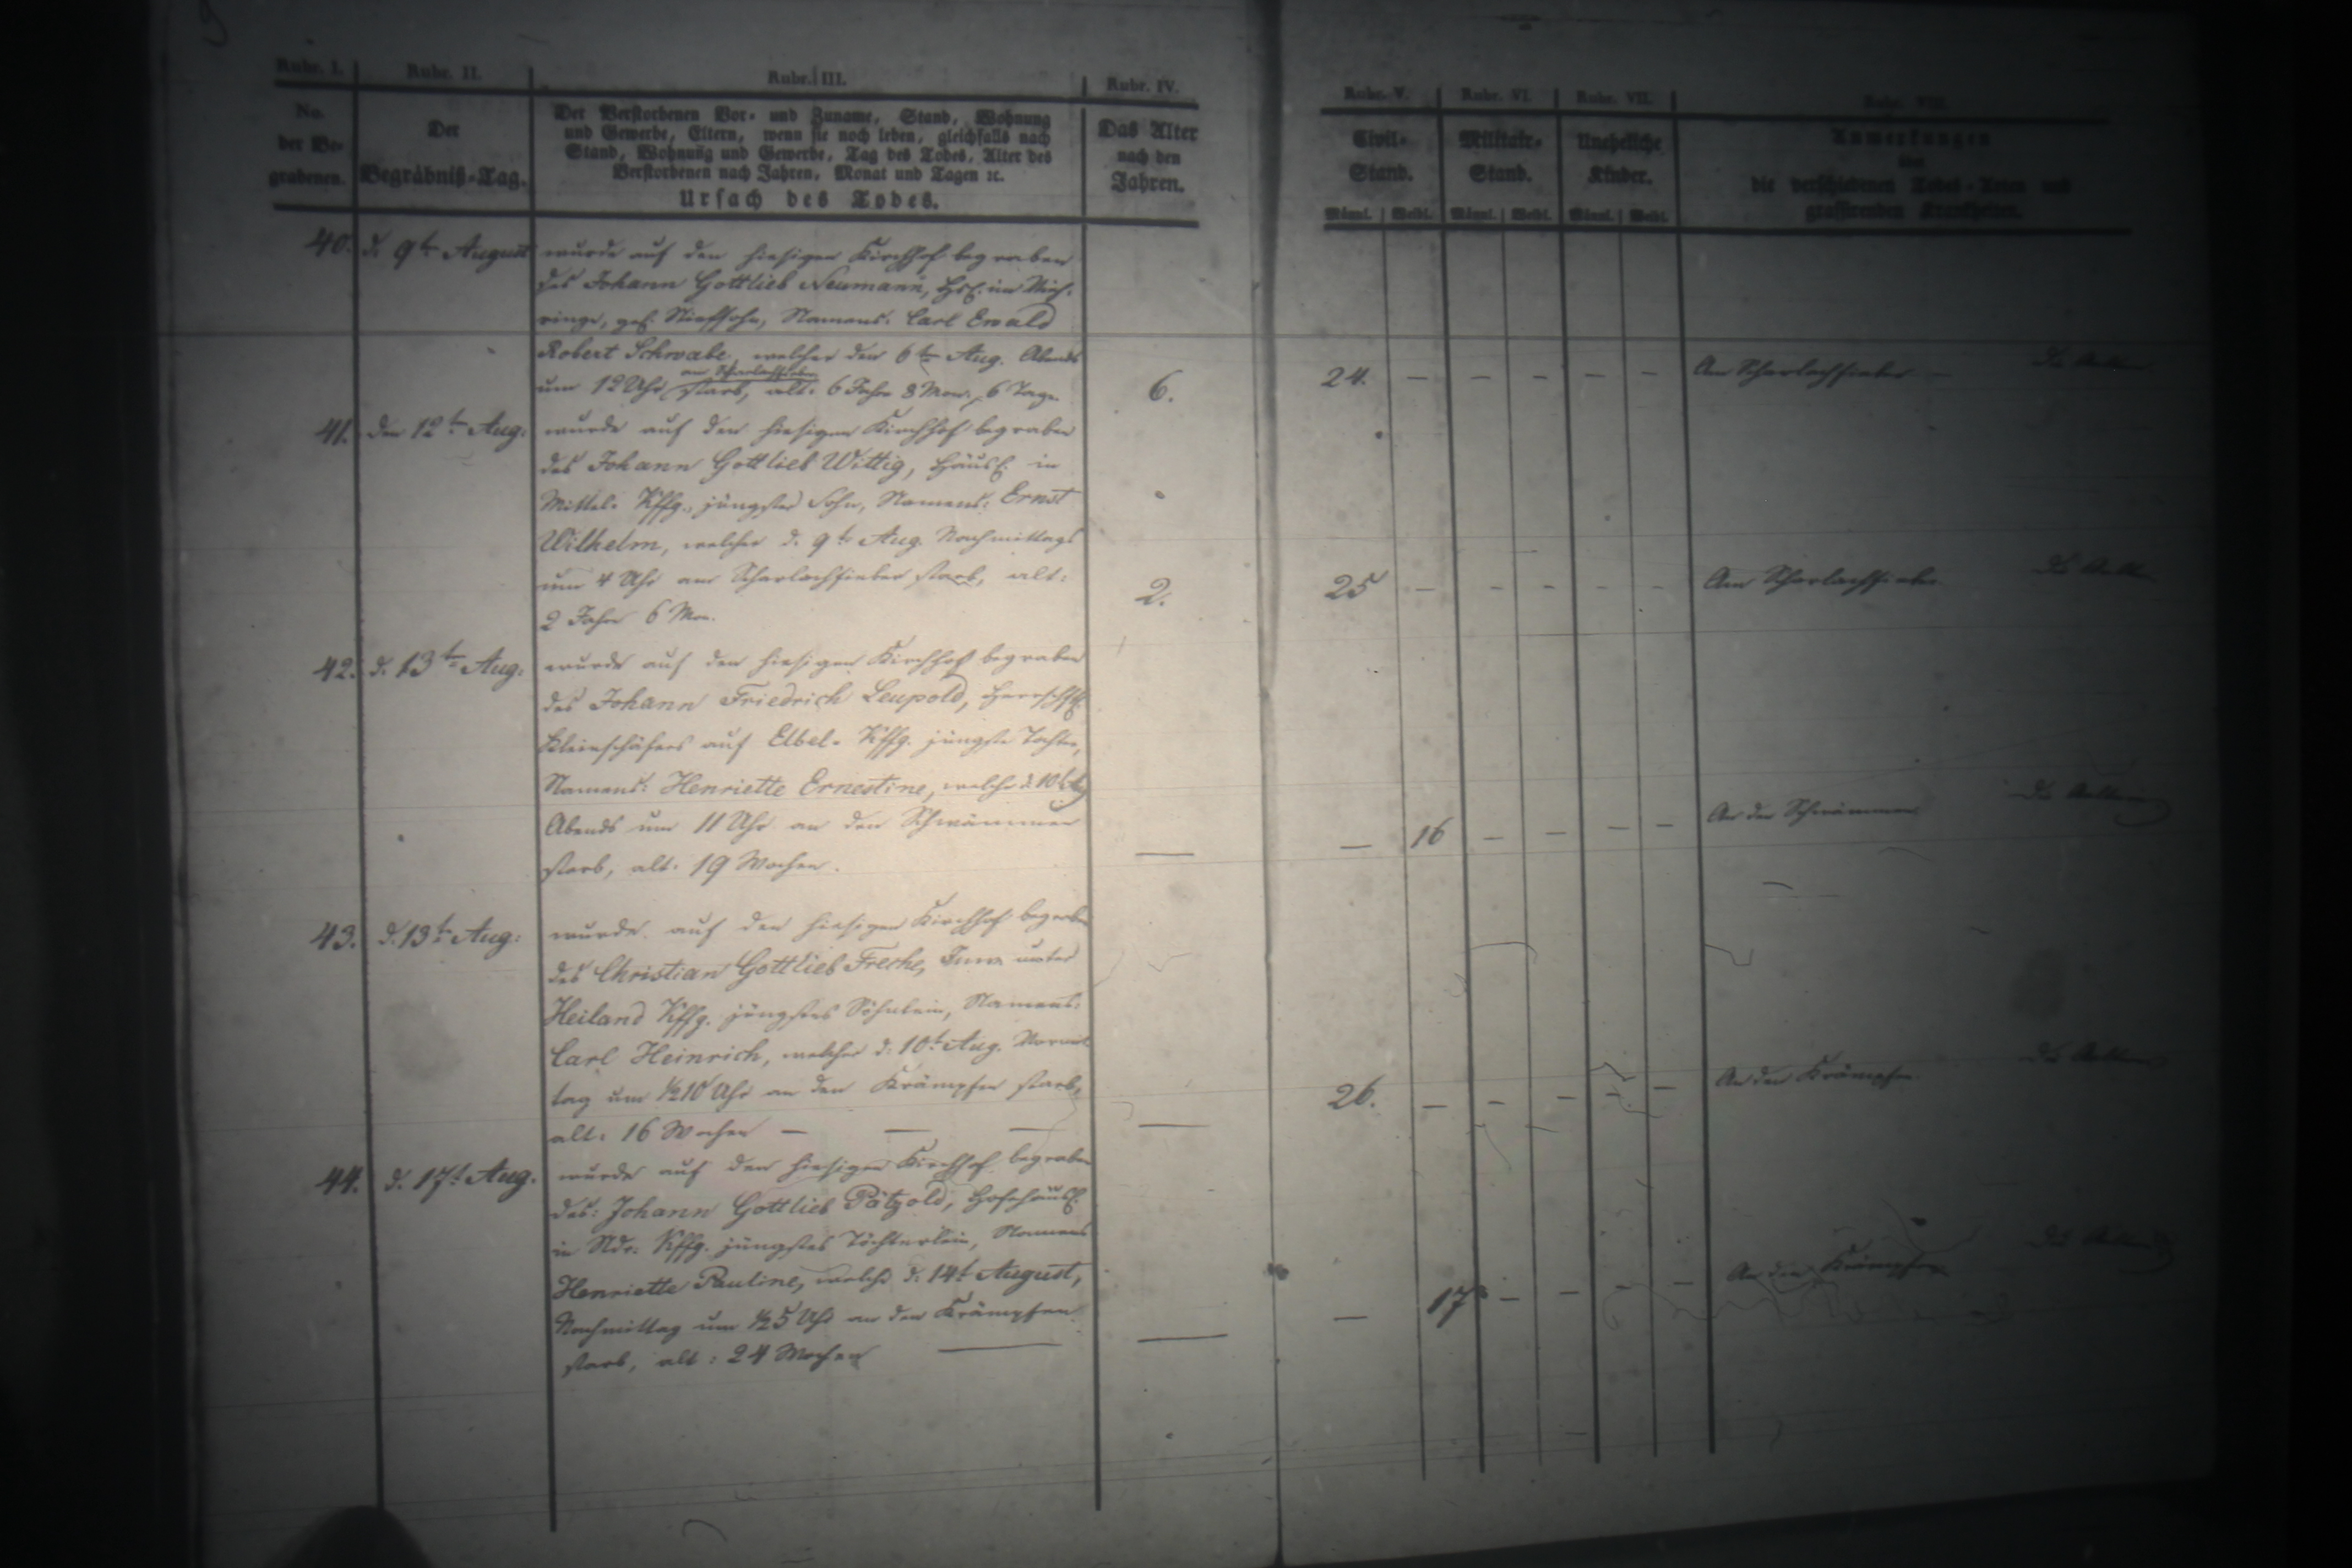 Rubr. I. Rubr. II. Rubr. III. Rubr. IV. Rubr. V. Rubr. VI. Rubr. VII. Rubr. VIII.
No.
der Be-
grabenen.
Der
Begräbniß-Tag.
Der Verstorbenen Vor- und Zuname, Stand, Wohnung
und Gewerbe, Eltern, wenn sie noch leben, gleichfalls nach
Stand, Wohnung und Gewerbe, Tag des Todes, Alter des
Verstorbenen nach Jahren, Monat und Tagen ꝛc.
Ursach des Todes.
Das Alter
nach den
Jahren.
Civil-
Stand.
Männl. Weibl.
Militair-
Stand.
Männl. Weibl.
Uneheliche
Kinder.
Männl. Weibl.
Anmerkungen
über
die verschiedenen Todes-Arten und
grassirenden Krankheiten.
40. d. 9t August wurde auf den hiesigen Kirchhof begraben
des Johann Gottlieb Neumann,
Stiefsohn, Namens: Carl Ewald
Robert Schwabe, welcher den 6t Aug. Abends
am Scharlachfieber
um 12 Uhr starb, alt: 6 Jahre 8 Mon. 6 Tage. 6. 24. — — — — — Am Scharlachfieber —
41. den 12t Aug. wurde auf den hiesigen Kirchhof begraben
des Johann Gottlieb Wittig, Häusl. in
Mittel- Kffg., jüngster Sohn, Namens: Ernst
Wilhelm, welcher d. 9t Aug. Nachmittags
um 4 Uhr am Scharlachfieber starb, alt:
2 Jahre 6 Mon. 2. 25 — — — — — Am Scharlachfieber
42. d. 13t Aug: wurde auf den hiesigen Kirchhof begraben
des Johann Friedrich Leupold, Herrschftl.
Kleinschäfers auf Elbel- Kffg. jüngste Tochter,
Namens: Henriette Ernestine, welche d. 10t Aug
Abends um 11 Uhr an den Schwämmen
starb, alt: 19 Wochen. — — 16 — — — — An den Schwämmen
43. d. 13t Aug: wurde auf den hiesigen Kirchhof begraben
des Christian Gottlieb Freche, Inw. unter
Heiland Kffg. jüngstes Söhnlein, Namens:
Carl Heinrich, welcher d. 10t Aug. Vormit
tag um ½10 Uhr an den Krämpfen starb,
alt: 16 Wochen — — — — 26. — — — — — An den Krämpfen
44. d. 17t Aug. wurde auf den hiesigen Kirchhof begraben
des: Johann Gottlieb Pätzold, Hofehäusl.
in Ndr. Kffg. jüngstes Töchterlein, Namens
Henriette Pauline, welche d. 14t August,
Nachmittag um ½5 Uhr an den Krämpfen
starb, alt: 24 Wochen — — — 17 — — — — An den Krämpfen